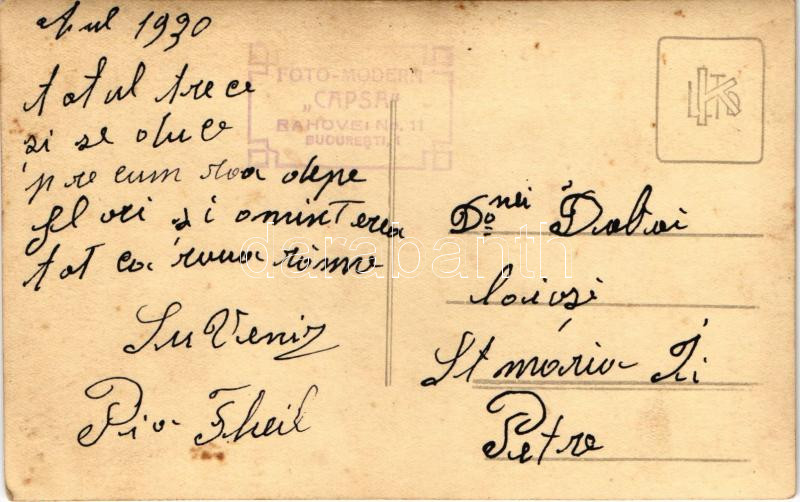 Anul 1930
totul trece
si se duce
pre cum roa depe
flori si aminterea
tot ca'runa ràmne
Su Venir
Pia Theil
FOTO-MODERN
„CAPSA"
RAHOVEI No. 11
BUCUREȘTI
Dnei Doboi
loiosi
St mária Ii
Petre
darabanth